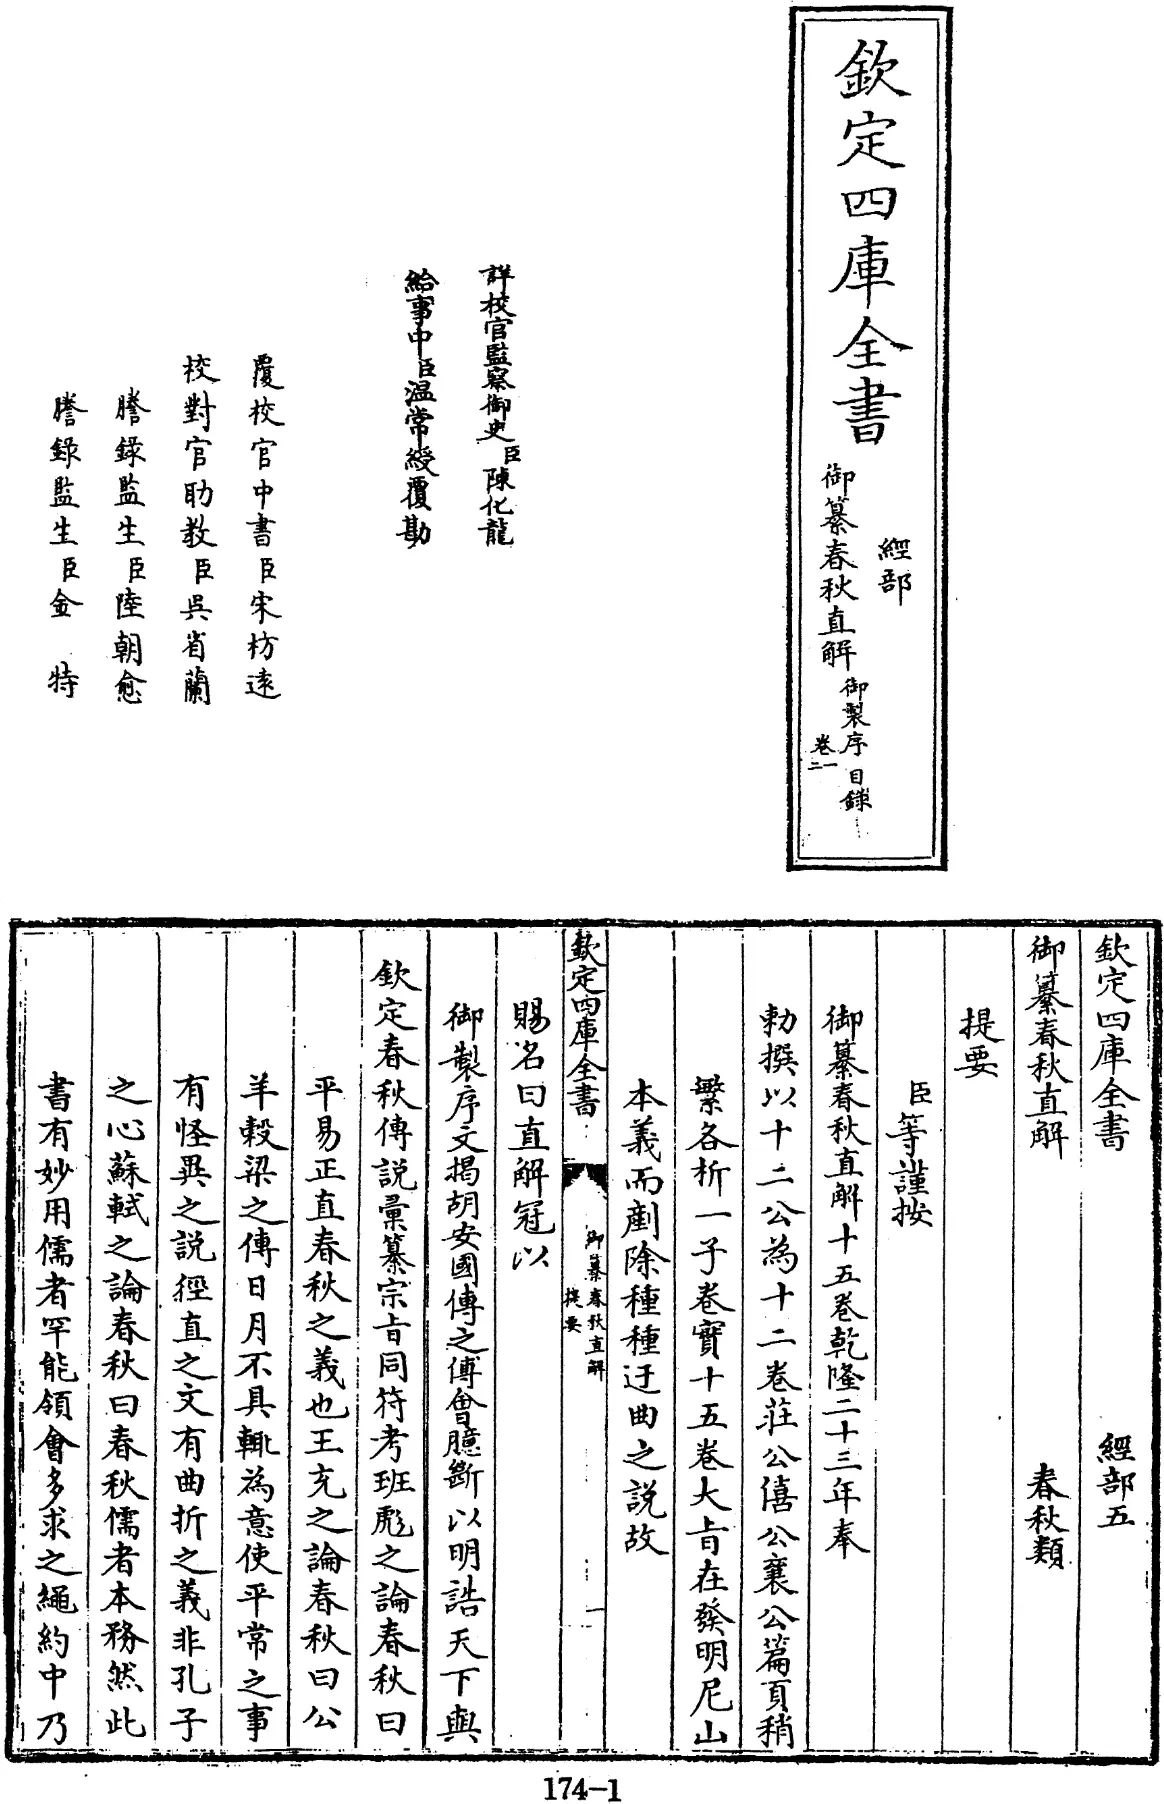 欽定四庫全書
經部
御纂春秋直解
御製序 目錄
卷一
二
詳校官監察御史臣陳化龍
給事中臣温常綬覆勘
覆校官中書臣宋枋遠
校對官助教臣吳省蘭
謄錄監生臣陸朝愈
謄錄監生臣金特
欽定四庫全書 經部五
御纂春秋直解 春秋類
提要
臣等謹按
御纂春秋直解十五卷乾隆二十三年奉
勅撰以十二公為十二卷莊公僖公襄公篇頁稍
繁各析一子卷實十五卷大旨在發明尼山
本義而剷除種種迂曲之説故
欽定四庫全書
御纂春秋直解
提要
一
賜名曰直解冠以
御製序文揭胡安國傳之傅會臆斷以明誥天下與
欽定春秋傳説彙纂宗旨同符考班彪之論春秋曰
平易正直春秋之義也王充之論春秋曰公
羊榖梁之傳日月不具輒為意使平常之事
有怪異之説徑直之文有曲折之義非孔子
之心蘇軾之論春秋曰春秋儒者本務然此
書有妙用儒者罕能領會多求之繩約中乃
174-1